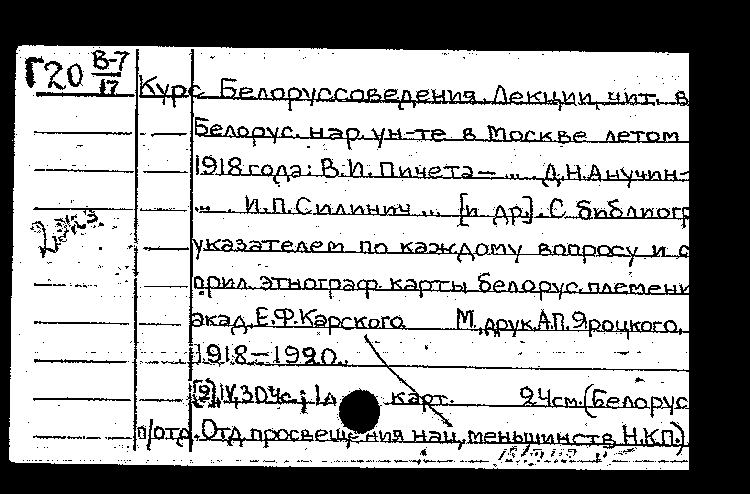 Г20 В-7/17
Курс Белоруссоведения. Лекции, чит. в
Белорус. нар. ун-те в Москве летом
1918 года: В.И. Пичета – „. Д.Н. Анучин-
„. И.П. Силинич ... [и др]. С библиогр
указателем по каждому вопросу и с
прил. этнограф. карты белорус. племени
акад. Е.Ф. Карского М., друк. А.П. Яроцкого,
1918–1920.
[2], IV, 304 с.; 1 л карт. 24 см. (Белорус
п/отд. Отд. просвещения нац. меньшинств Н.К.П.)
2 экз